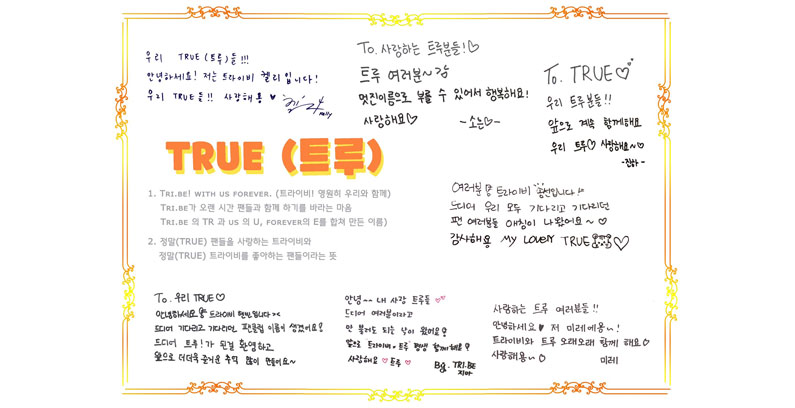 우리 TRUE(트루)들!!!
안녕하세요! 저는 트라이비 켈리입니다!
우리 TRUE들!! 사랑해용 ♥
Kelly
To. 사랑하는 트루분들!♡
트루 여러분~
멋진이름으로 부를 수 있어서 행복해요!
사랑해요♡ -소은♡-
To. TRUE♡
우리 트루분들!!
앞으로 계속 함께해요
우리 트루♡ 사랑해요~♡
-진하-
TRUE (트루)
1. TRI.BE! WITH US FOREVER. (트라이비! 영원히 우리와 함께)
TRI.BE가 오랜 시간 팬들과 함께 하기를 바라는 마음
TRI.BE 의 TR 과 US 의 U, FOREVER의 E를 합쳐 만든 이름)
2. 정말(TRUE) 팬들을 사랑하는 트라이비와
정말(TRUE) 트라이비를 좋아하는 팬들이라는 뜻
여러분 트라이비 송선입니다
드디어 우리 모두 기다리고 기다리던
팬 여러분들 애칭이 나왔어요~♡
감사해용 MY LOVELY TRUE ♡
To. 우리 TRUE♡
안녕하세요 트라이비 현빈입니다 ><
드디어 기다리고 기다리던 팬클럽 이름이 생겼어요!
드디어 트루!가 된걸 환영하고
앞으로 더더욱 즐거운 추억 많이 만들어요~
안녕~~ 내 사랑 트루들
드디어 여러분이라고
안 불러도 되는 날이 왔어요?
앞으로 트라이비 트루 평생 함께해요?
사랑해요 ♡트루♡ By. TRI.BE
지아
사랑하는 트루 여러분들!!
안녕하세요♥ 저 미레예용~!
트라이비와 트루 오래오래 함께 해요♡
사랑해용~♡ 미레